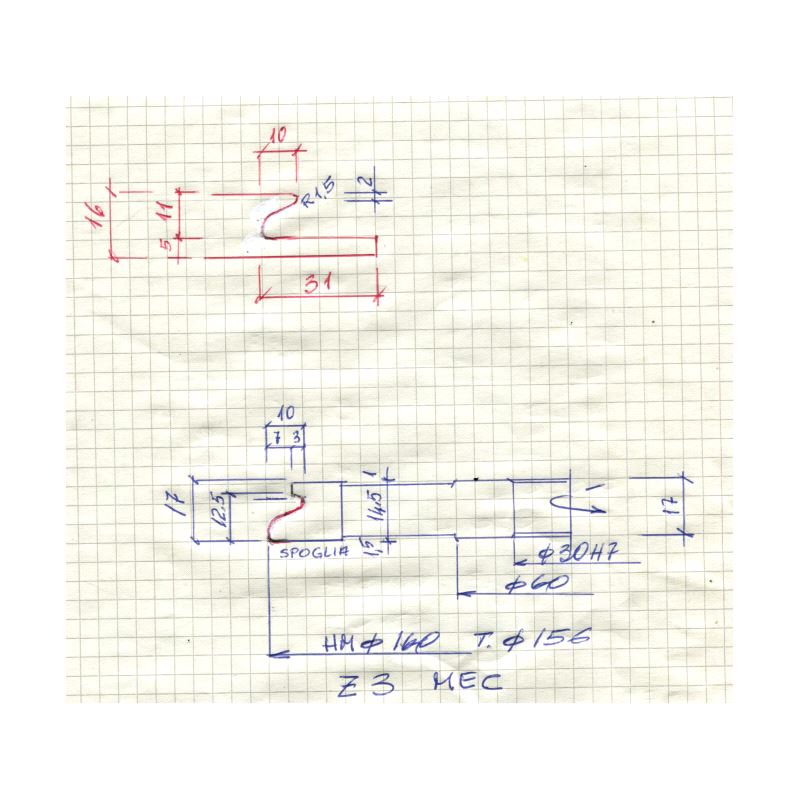 10
R1,5
2
16
11
5
31
10
7 3
17
12.5
1
14.5
1,5
17
SPOGLIA
φ30H7
φ60
HM φ160 T. φ156
Z3 MEC